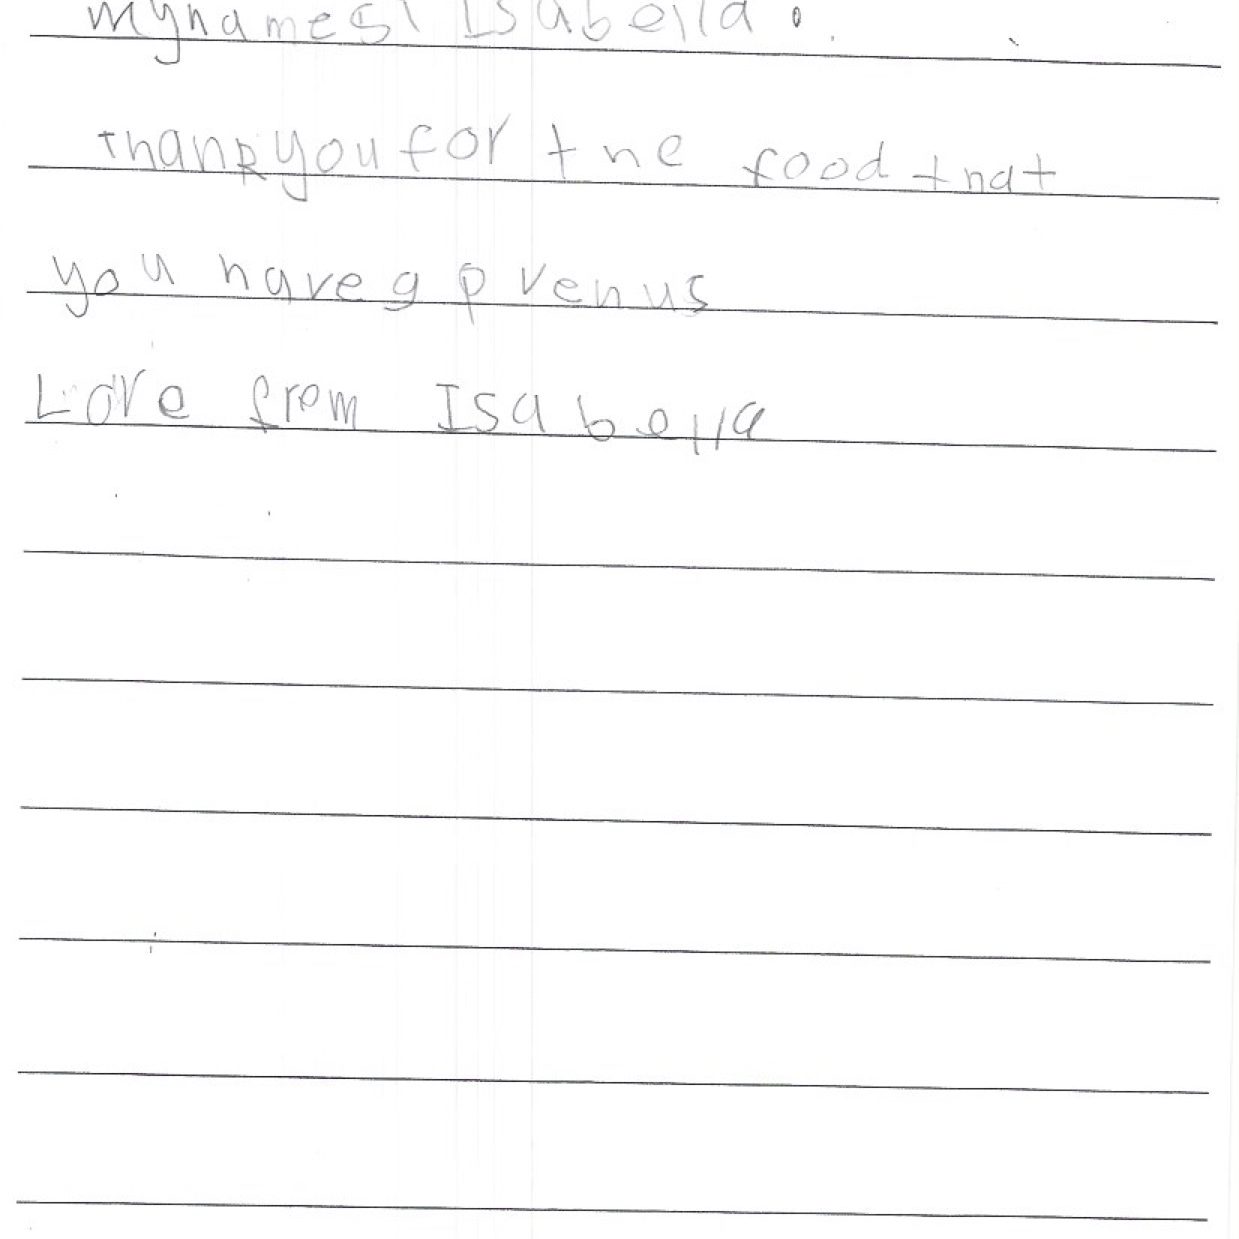 mynames Isabella.
thankyou for the food that
you have g p venus
Love from Isabella